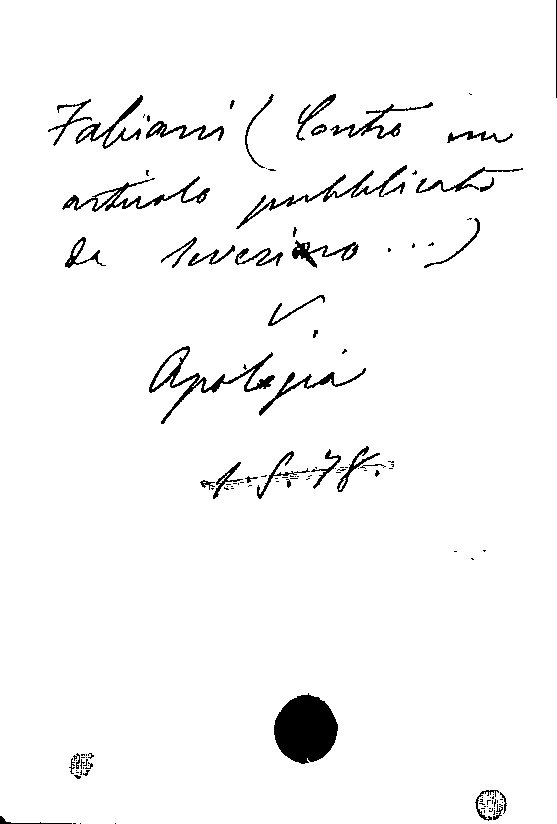 Fabiani (Contro un
articolo pubblicato
da Severino ...)
V.
Apologia